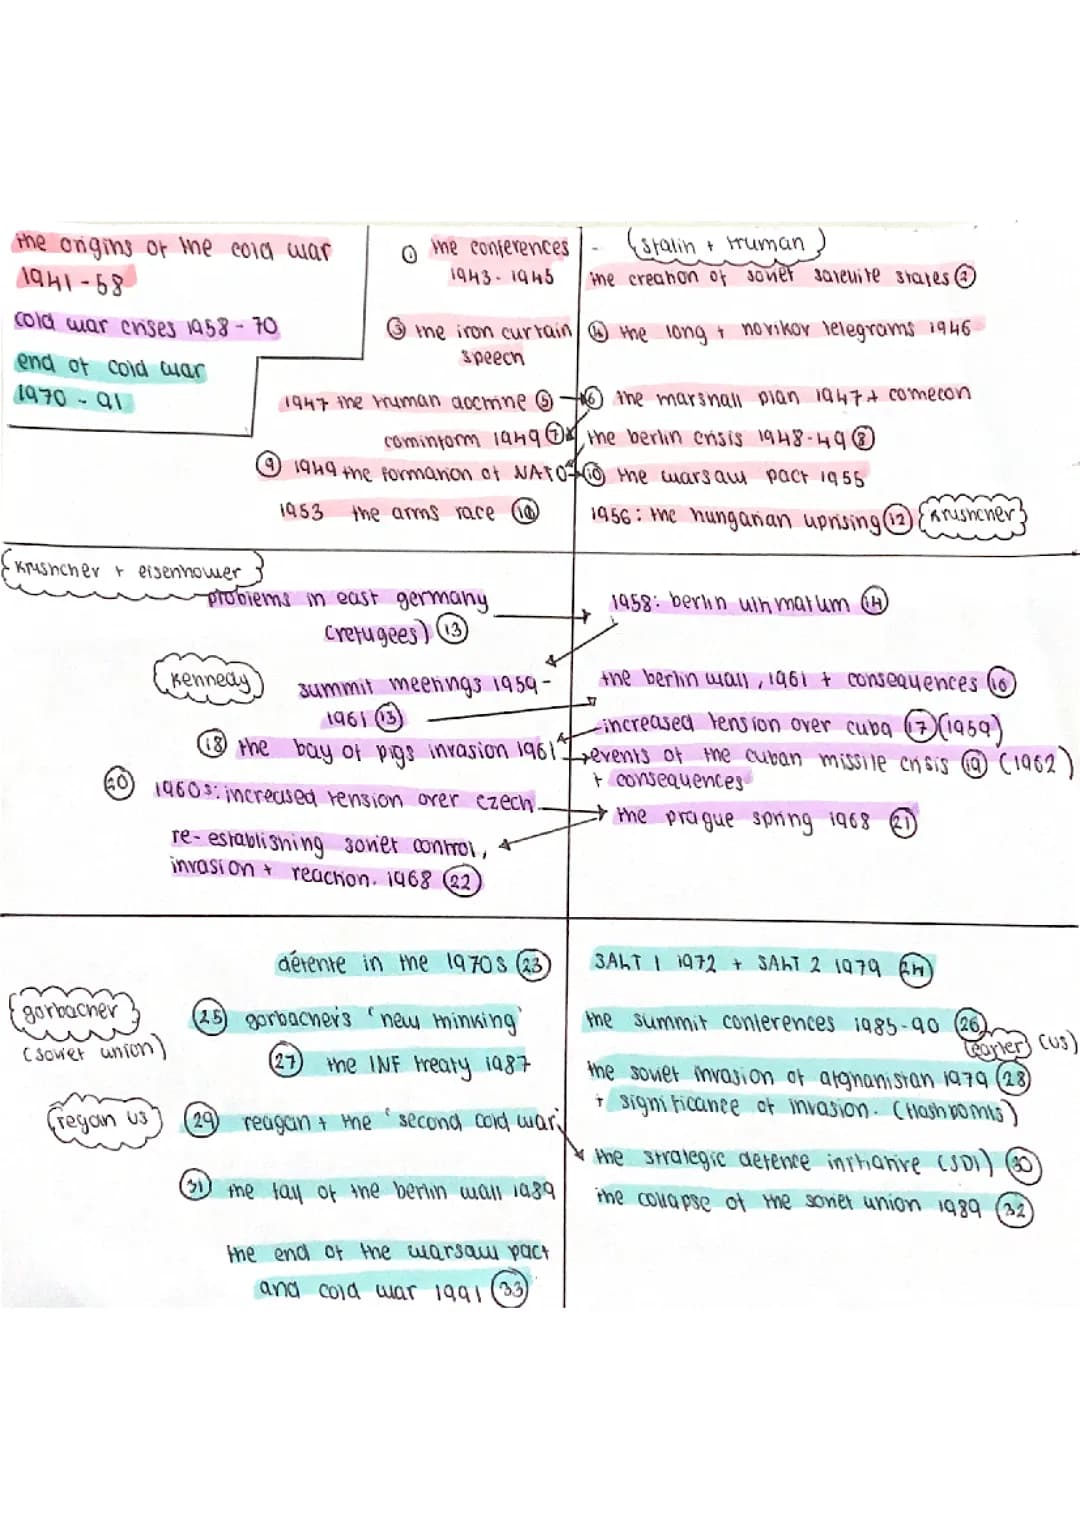 the origins of the cold war
1941-58
cold war crises 1958-70
end of cold war
1970-91
① the conferences
1943-1945
- (stalin + truman)
the creation of soviet satellite states ②
③ the iron curtain
speech
④ the long + novikov telegrams 1946
1947 the truman doctrine ⑤
⑥ the marshall plan 1947 + comecon
cominform 1949 ⑦
the berlin crisis 1948-49 ⑧
⑨ 1949 the formation of NATO
⑩ the warsaw pact 1955
1953 the arms race
1956: the hungarian uprising ⑫ {krushchev}
{krushchev + eisenhower}
problems in east germany
(refugees) ⑬
1958: berlin ultimatum ⑭
kennedy
summit meetings 1959-
1961 ⑬
the berlin wall, 1961 + consequences ⑯
increased tension over cuba ⑰ (1959)
⑱ the bay of pigs invasion 1961
events of the cuban missile crisis ⑲ (1962)
+ consequences
⑳ 1960s: increased tension over czech.
the prague spring 1968 ㉑
re-establishing soviet control,
invasion + reaction. 1968 ㉒
détente in the 1970s ㉓
SALT 1 1972 + SALT 2 1979 ㉔
{gorbachev}
(soviet union)
㉕ gorbachev's 'new thinking'
the summit conferences 1985-90 ㉖
(carter) (US)
㉗ the INF treaty 1987
the soviet invasion of afghanistan 1979 ㉘
+ significance of invasion. (flashpoints)
(regan US)
㉙ reagan + the 'second cold war'
the strategic defence initiative (SDI) ㉚
㉛ the fall of the berlin wall 1989
the collapse of the soviet union 1989 ㉜
the end of the warsaw pact
and cold war 1991 ㉝